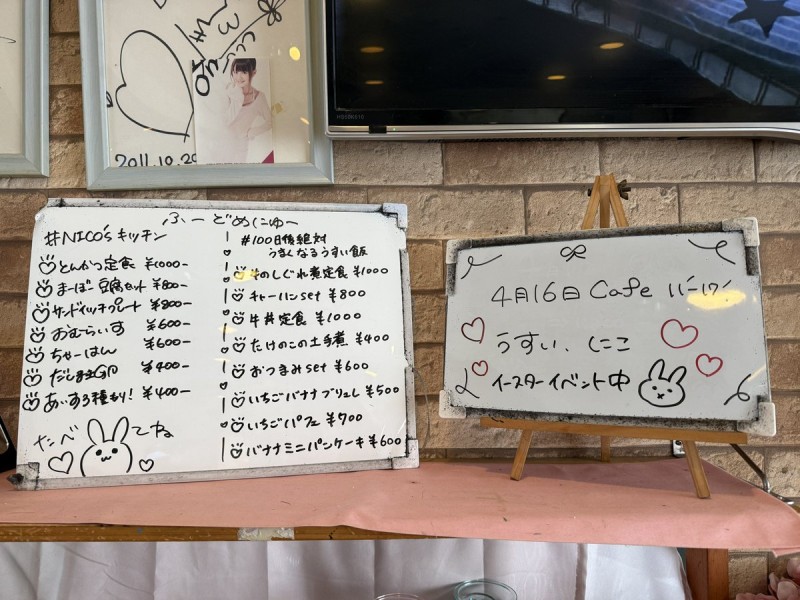 2011.10.29
ふーどめにゅー
#NICO'sキッチン
とんかつ定食 ¥1000-
まーぼー豆腐セット ¥800-
サンドイッチプレート ¥800-
おむらいす ¥600-
ちゃーはん ¥600-
だし巻き卵 ¥400-
あいす3種もり! ¥400-
たべてね
#100日後絶対
うまくなるうすい飯
牛のしぐれ煮定食 ¥1000
チャーハンset ¥800
牛丼定食 ¥1000
たけのこの土手煮 ¥400
おつまみset ¥600
いちごバナナブリュレ ¥500
いちごパフェ ¥700
バナナミニパンケーキ ¥600
4月16日 Cafe 11:-17:-
うすい、にこ
イースターイベント中